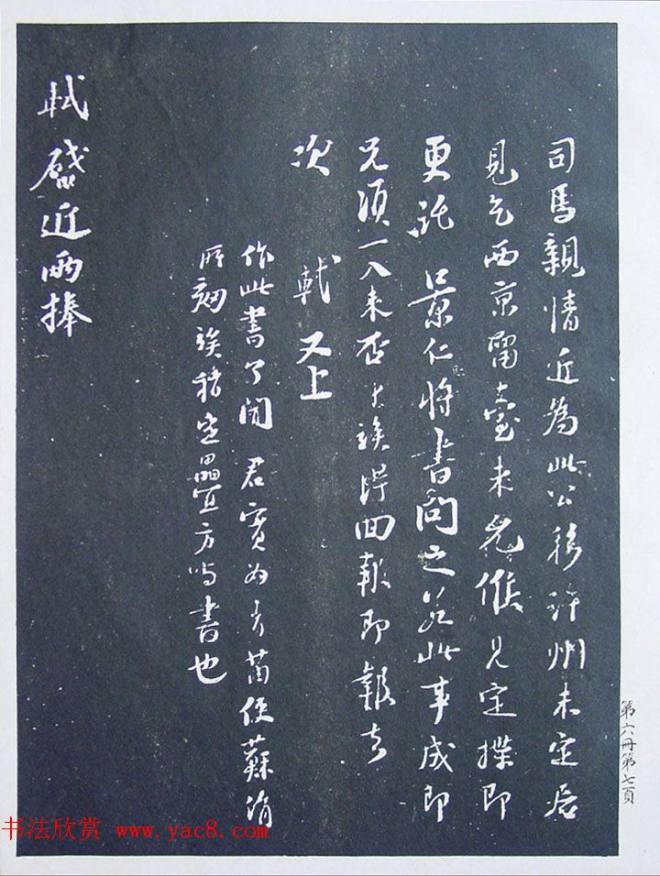 司馬親情近為此公移許州未定居
見乞西京留臺未允候見定揲即
更託 景仁將書問之若此事成即
兄須一入來否才候得回報即報去
次 軾又上
作此書了聞 君實為青苗使蘇涓
所劾候稍定疊宜方與書也
軾啟近兩捧
第六冊第七頁
书法欣赏 www.yac8.com